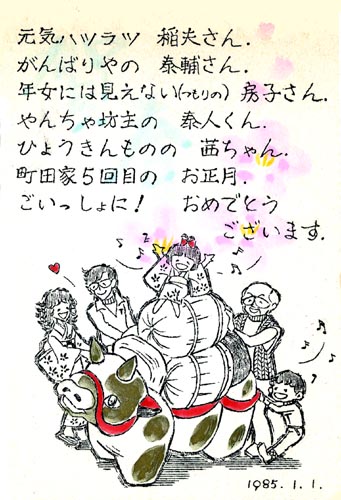 元気ハツラツ 稲夫さん.
がんばりやの 泰輔さん.
年女には見えない(つもりの) 房子さん.
やんちゃ坊主の 泰人くん.
ひょうきんものの 茜ちゃん.
町田家5回目の お正月.
ごいっしょに! おめでとう
ございます.
1985. 1. 1.